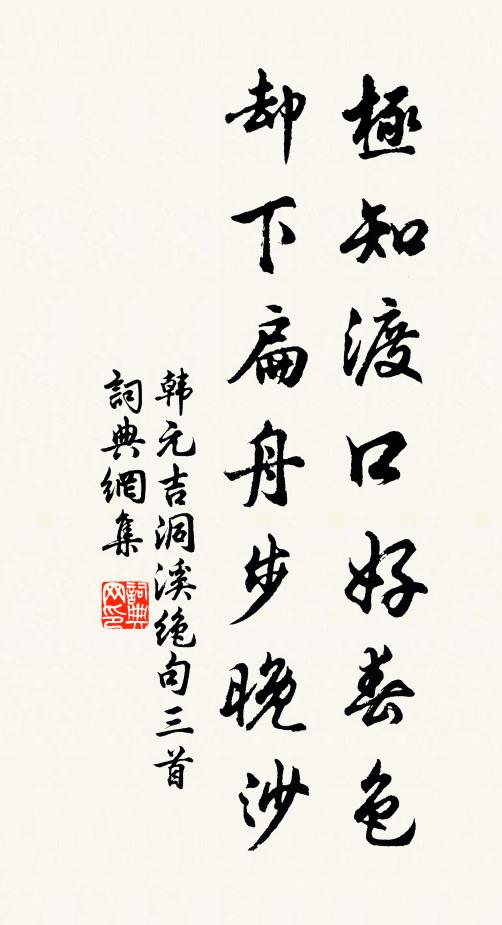 極知渡口好春色
却下扁舟步晚沙
韩元吉洞溪绝句三首
詞典網集
詞典网印